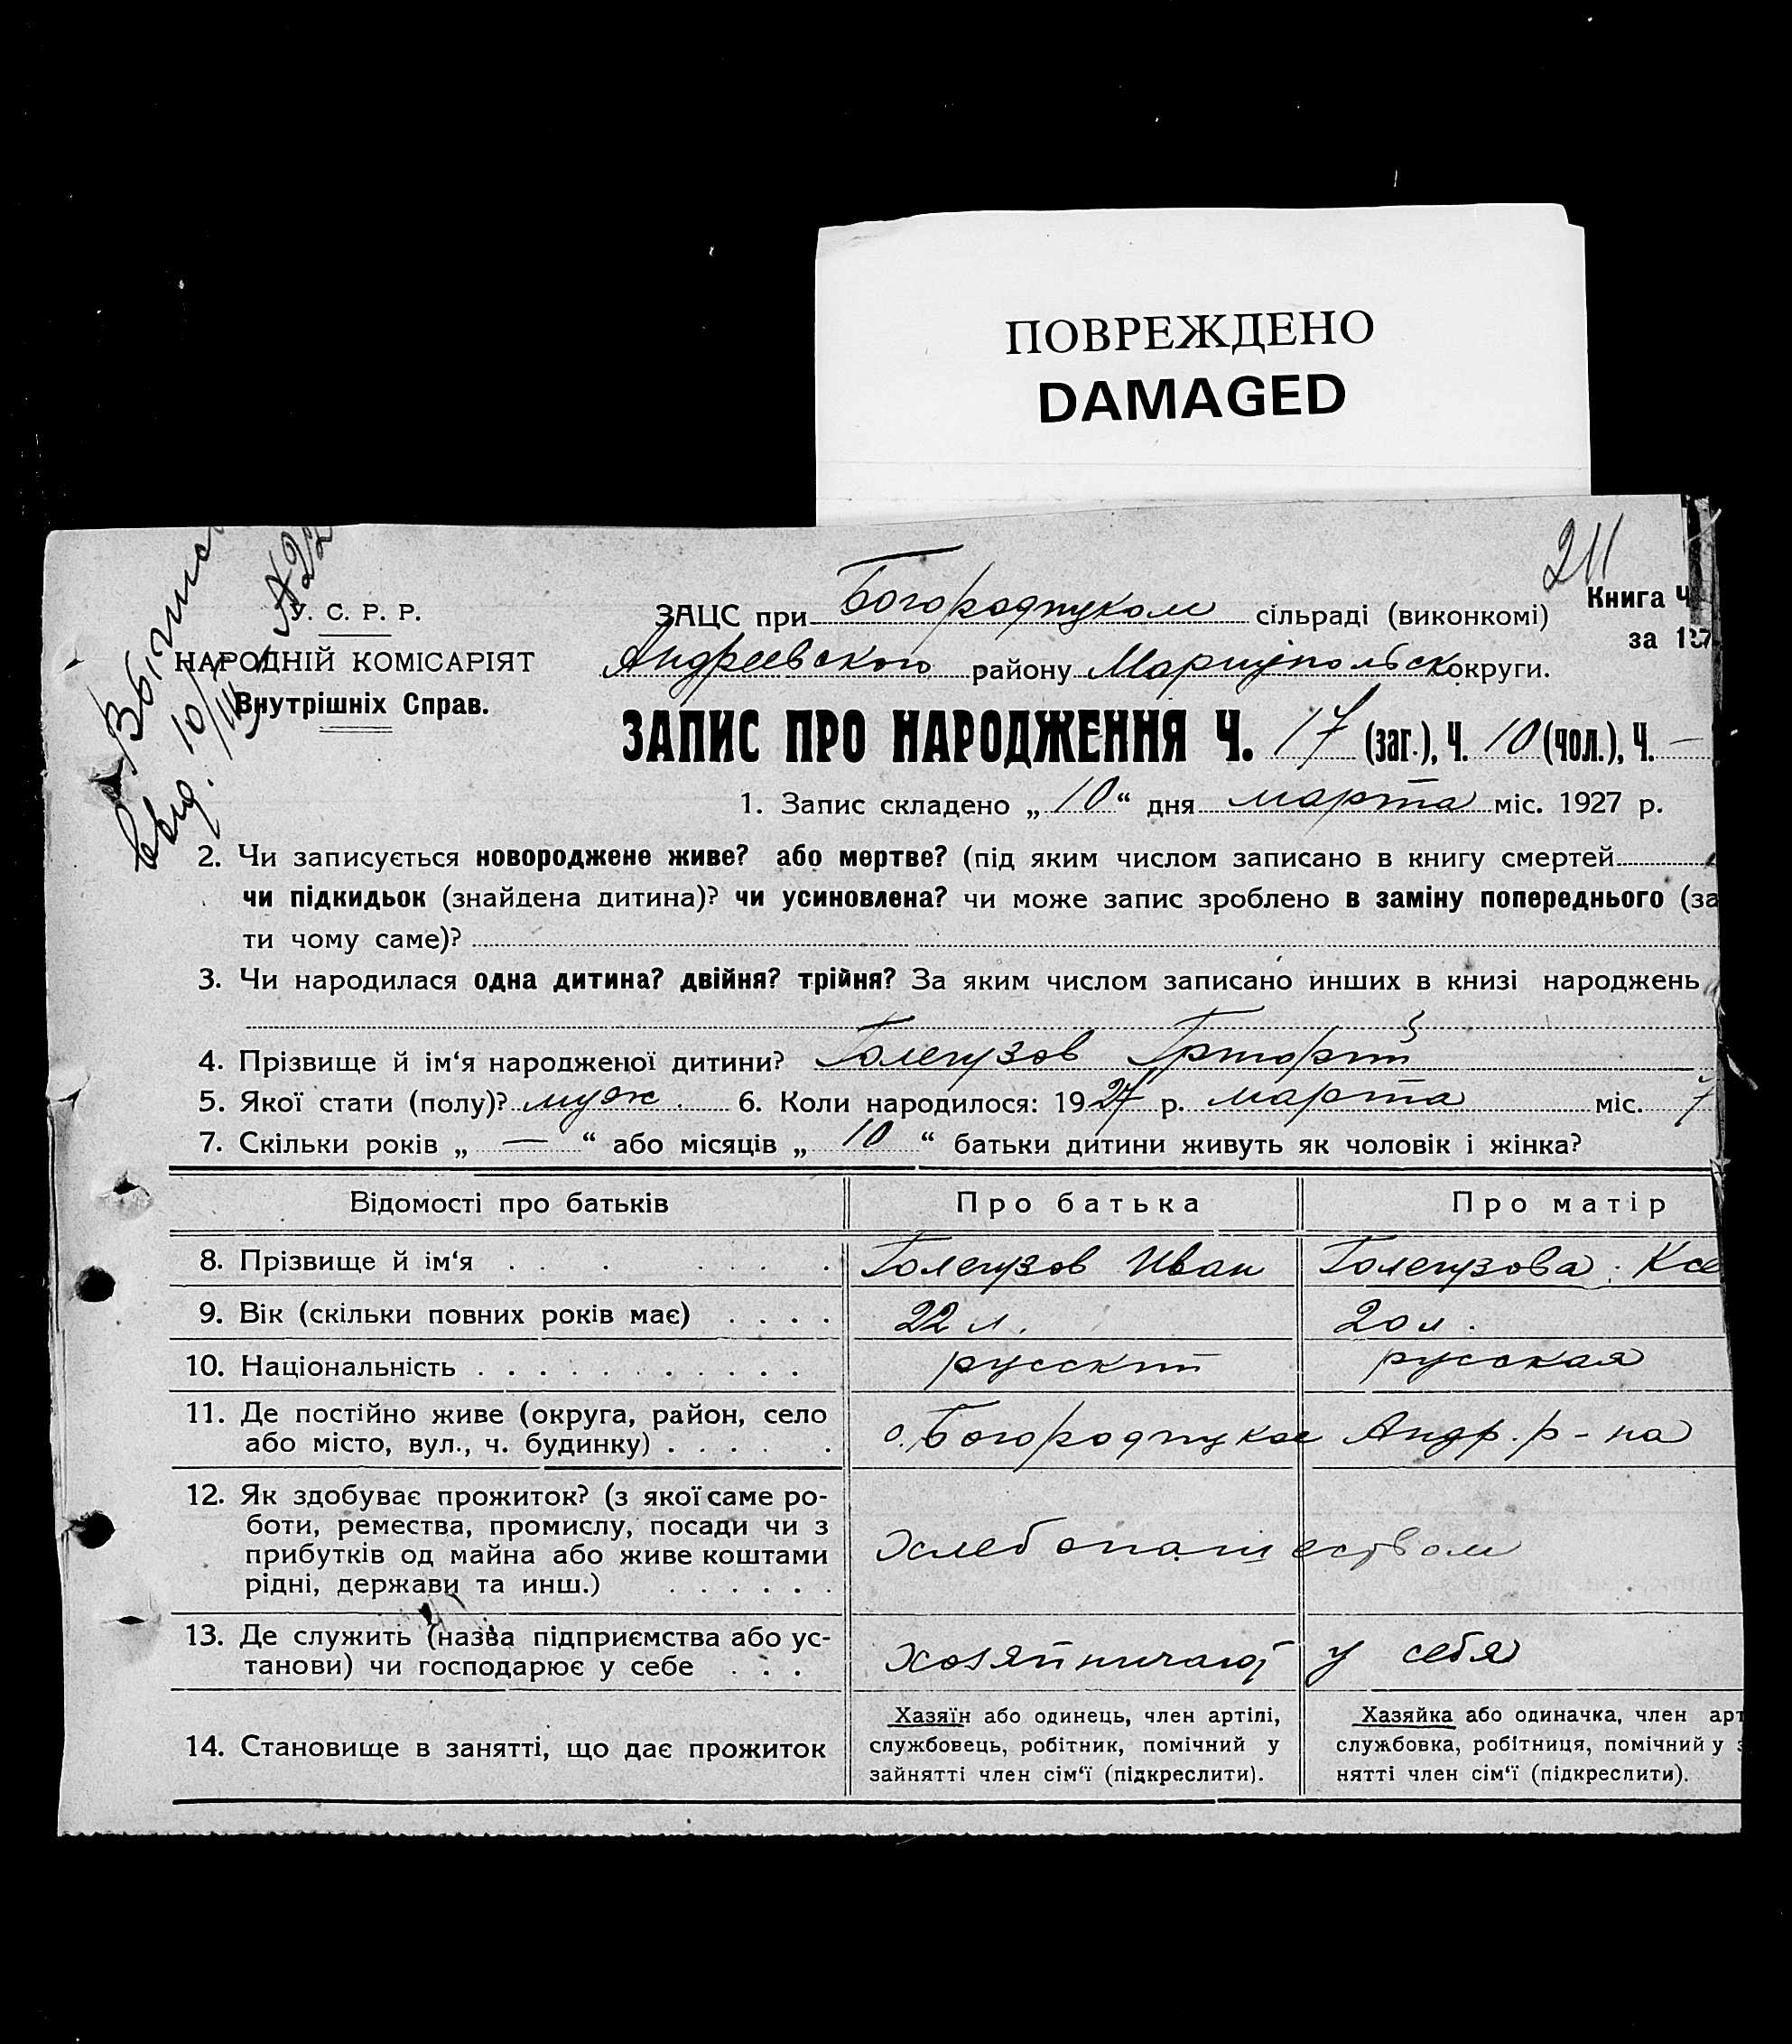 ПОВРЕЖДЕНО
DAMAGED
211
Книга Ч
за 1927
У. С. Р. Р.
НАРОДНІЙ КОМІСАРІЯТ
Внутрішніх Справ.
ЗАЦС при Богородицком сільраді (виконкомі)
Андреевского району Мариупольск округи.
ЗАПИС ПРО НАРОДЖЕННЯ Ч. 17 (заг.), Ч. 10 (чол.), Ч. —
1. Запис складено „ 10 “ дня марта міс. 1927 р.
2. Чи записується новороджене живе? або мертве? (під яким числом записано в книгу смертей
чи підкидьок (знайдена дитина)? чи усиновлена? чи може запис зроблено в заміну попереднього (за
ти чому саме)?
3. Чи народилася одна дитина? двійня? трійня? За яким числом записано инших в книзі народжень
4. Прізвище й ім‘я народженої дитини? Голегузов
5. Якої стати (полу)? муж. 6. Коли народилося: 1927 р. марта міс. 7
7. Скільки років „ — “ або місяців „ 10 “ батьки дитини живуть як чоловік і жінка?
Відомості про батьків Про батька Про матір
8. Прізвище й ім‘я . . . . . . . . Голегузов Иван Голегузова Ксе
9. Вік (скільки повних років має) . . . . 22 л. 20 л.
10. Національність . . . . . . . . . . . русский русская
11. Де постійно живе (округа, район, село
або місто, вул., ч. будинку) . . . . . с. Богородицкое Андр. р-на
12. Як здобуває прожиток? (з якої саме ро-
боти, ремества, промислу, посади чи з
прибутків од майна або живе коштами
рідні, держави та инш.) . . . . . . хлебопашеством
13. Де служить (назва підприємства або ус-
танови) чи господарює у себе . . . хозяйничают у себя
14. Становище в занятті, що дає прожиток
Хазяїн або одинець, член артілі,
службовець, робітник, помічний у
зайнятті член сім‘ї (підкреслити).
Хазяйка або одиначка, член арт
службовка, робітниця, помічний у з
нятті член сім‘ї (підкреслити).